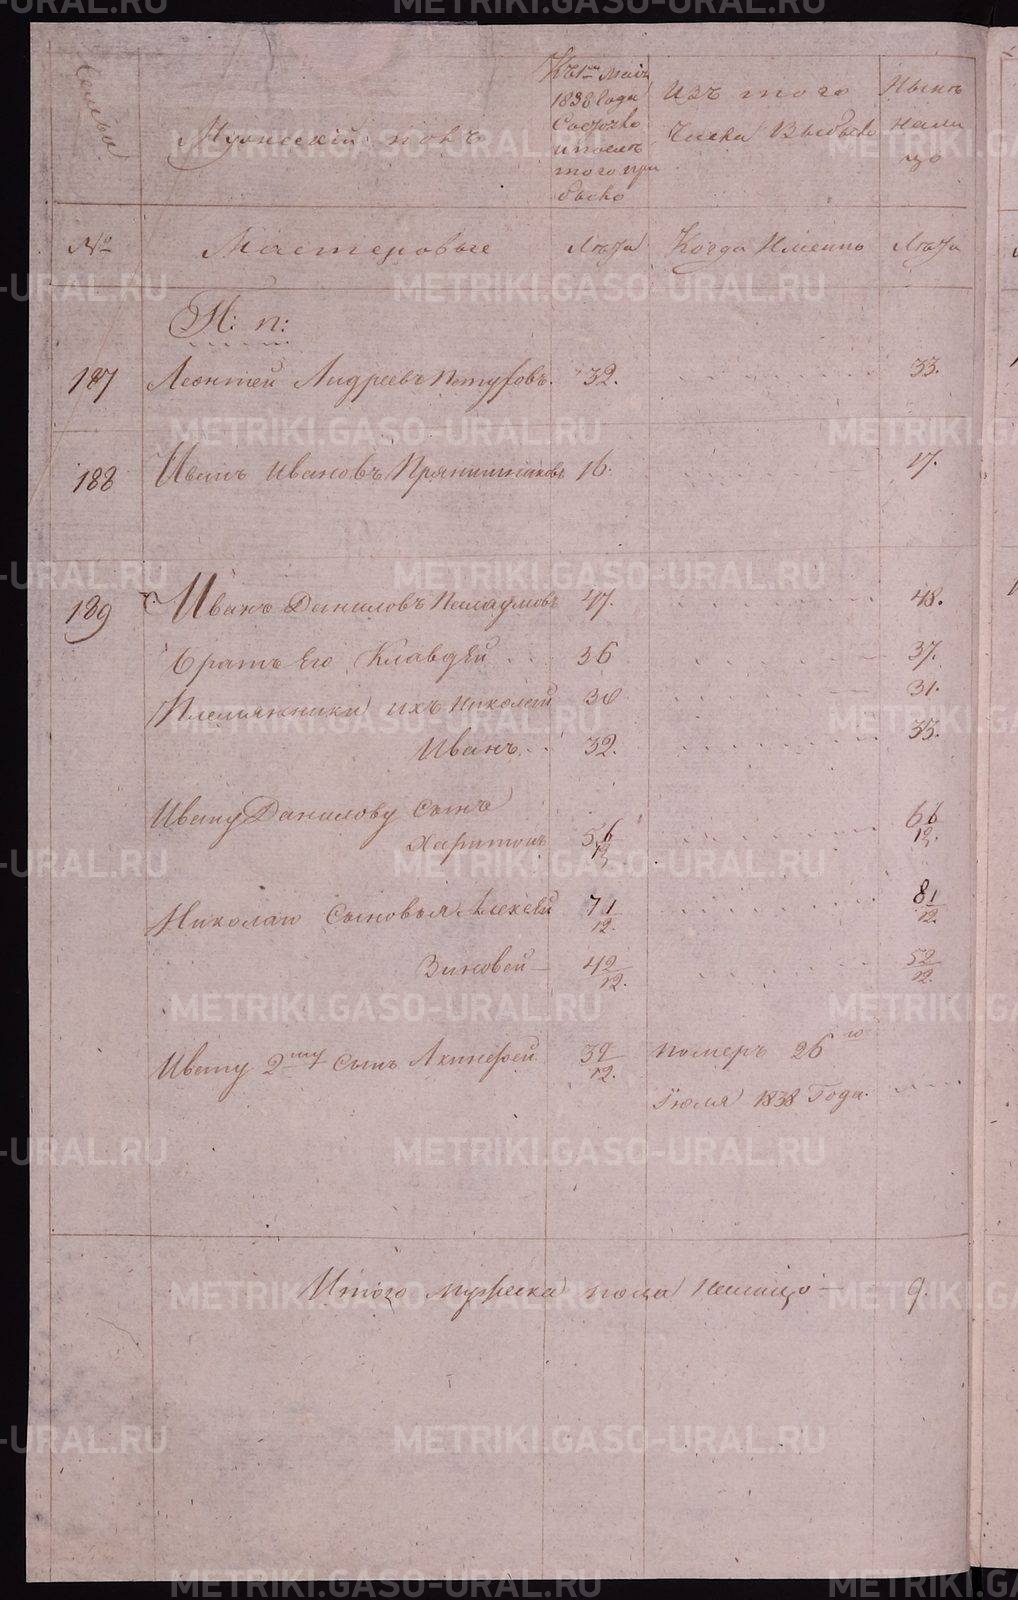 Семьи
Мужескій полъ
Къ 1му Маія
1838 Года
Состояло
и после
того при
было
Изъ того
Числа Выбыло
Нынѣ
нали
цо
№
Мастеровые
Лѣта
Когда Именно
Лѣта
Н: п:
187 Леонтей Андреевъ Петуховъ. 32. 33.
188 Иванъ Ивановъ Прянишниковъ 16. 17.
189 Иванъ Даниловъ 47. 48.
братъ Его Клавдей 36 37.
Племянники ихъ Николай 30 31.
Иванъ 32. 33.
Ивану Данилову сынъ
Харитонъ 5 6/12 6 6/12.
Николаю Сыновья Алексей 7 1/12. 8 1/12.
Зиновей 4 2/12. 5 2/12.
Ивану 2му Сынъ Акинфей 3 9/12. померъ 26го
Іюля 1838 Года.
Итого мужеска пола налицо 9.
METRIKI.GASO-URAL.RU